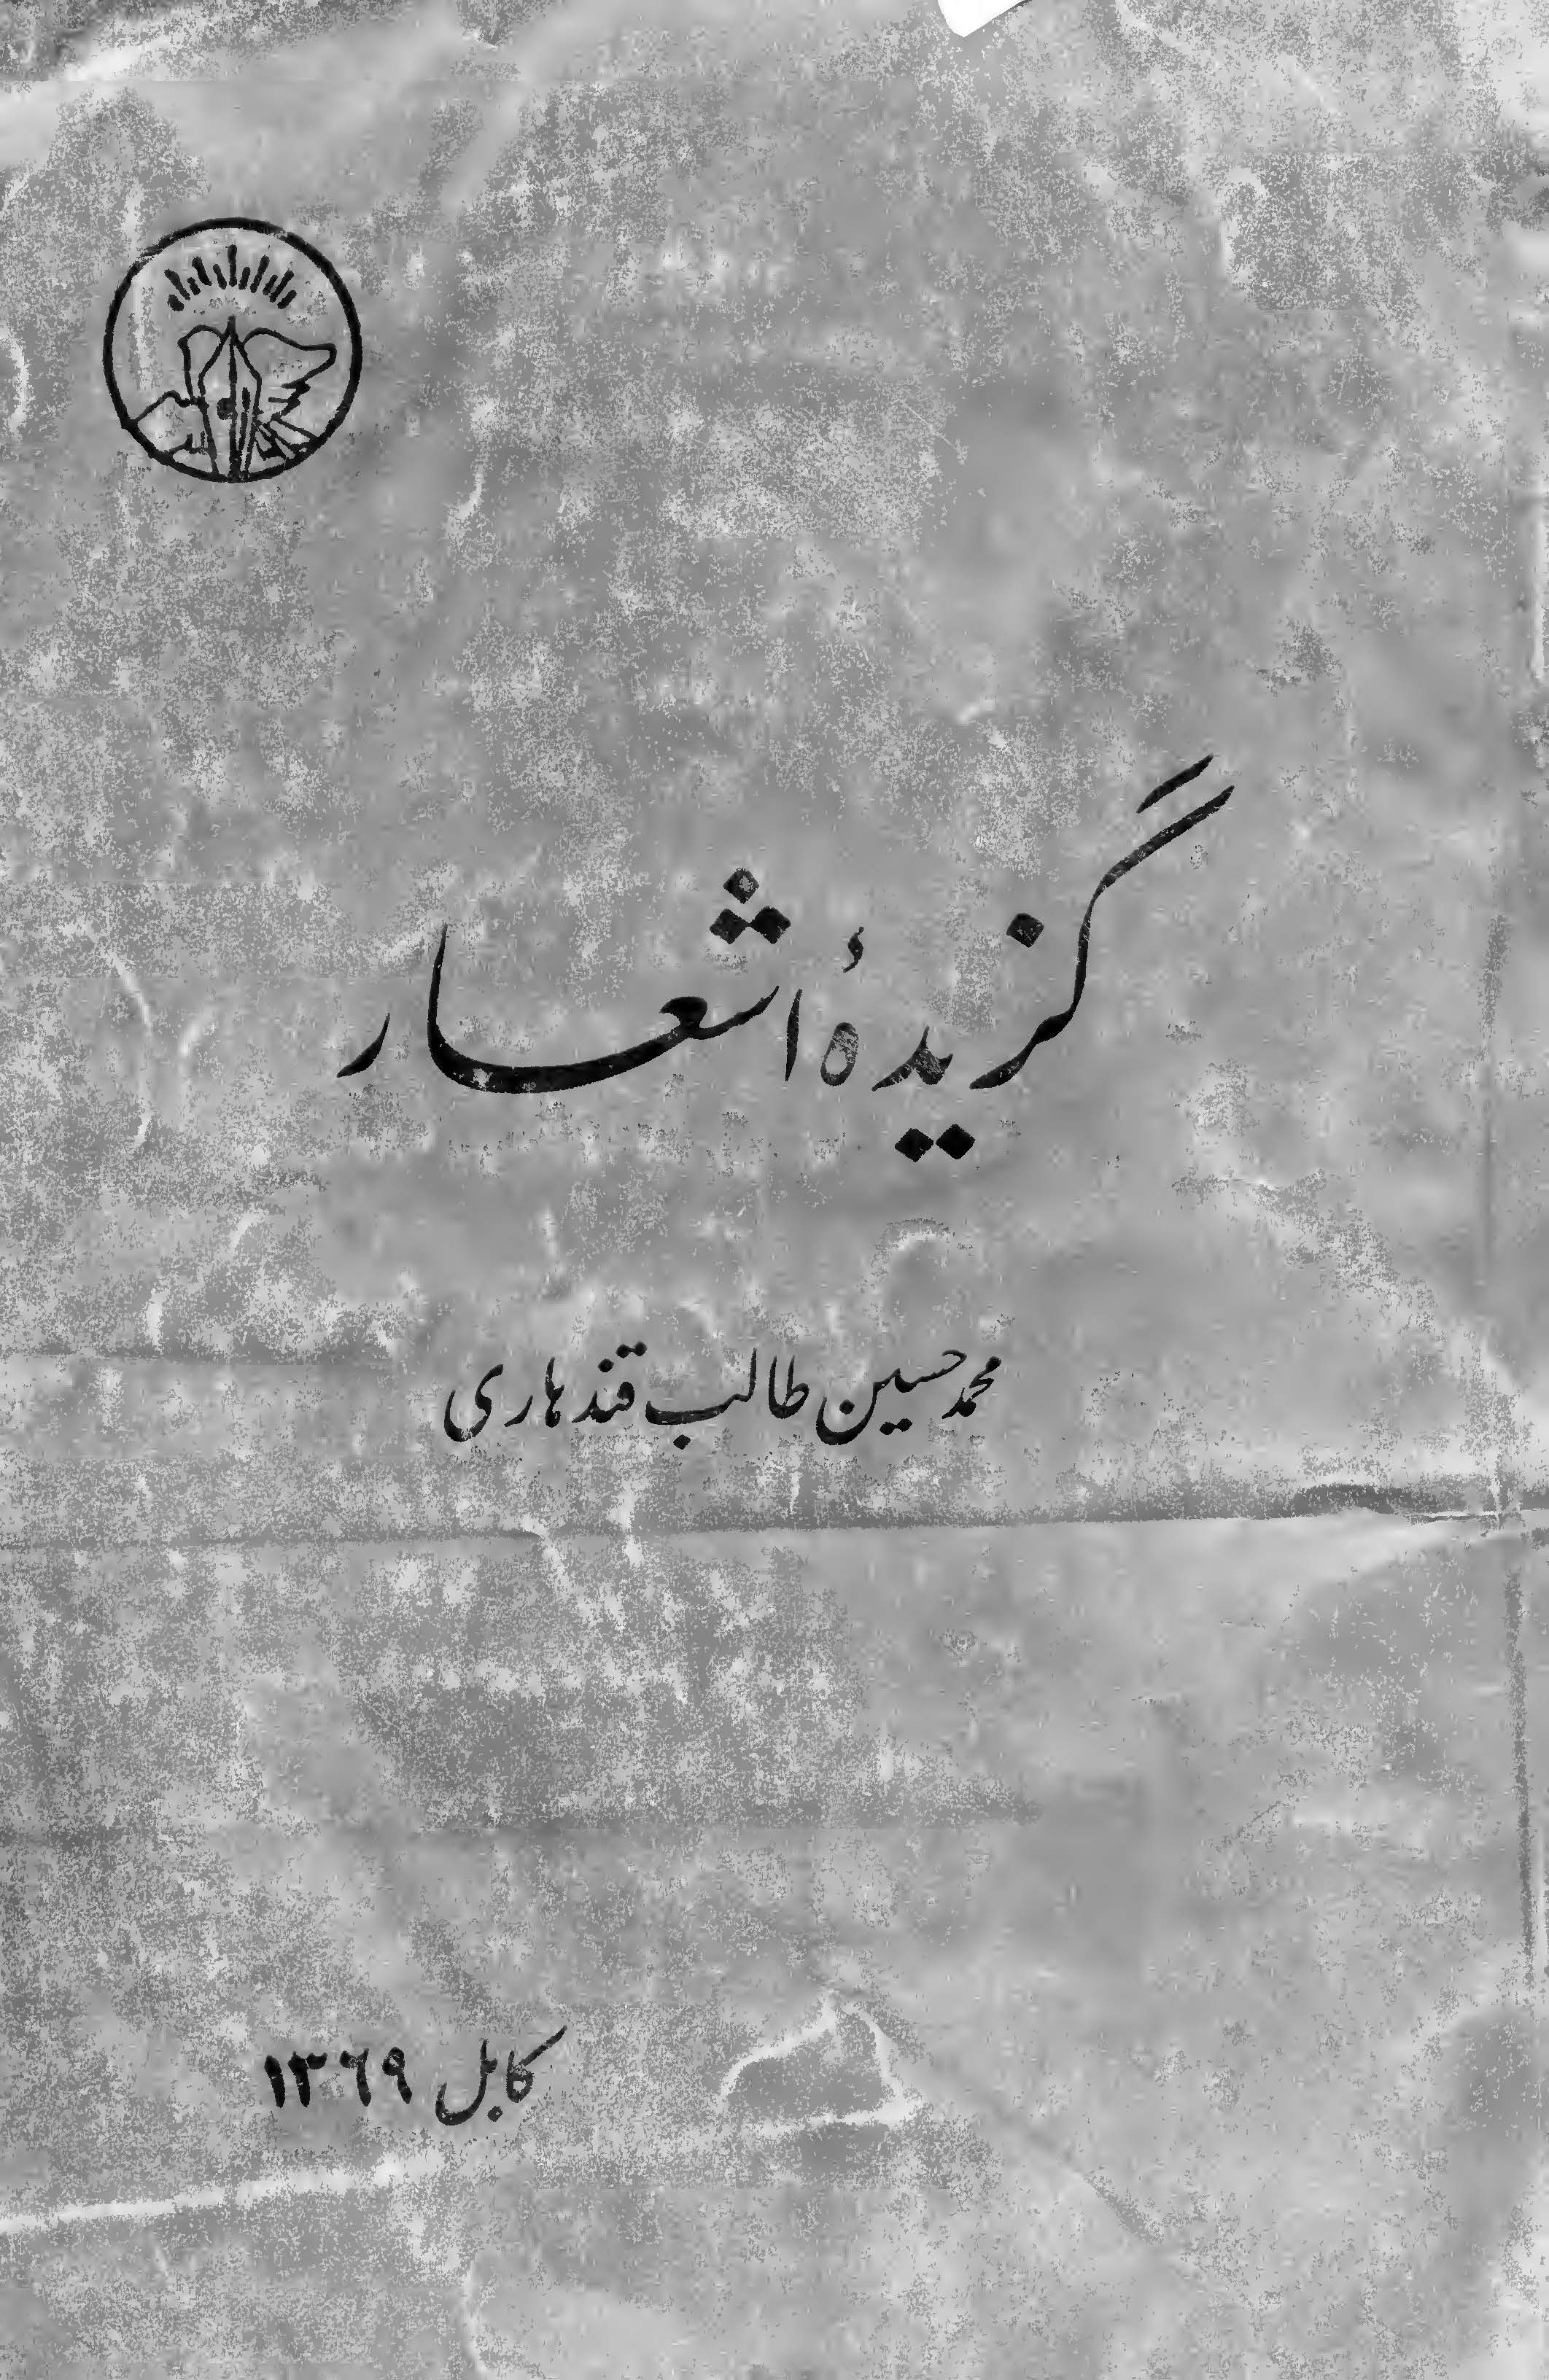 گزیدهٔ اشعار
محمد حسین طالب قندهاری
کابل ۱۳۶۹